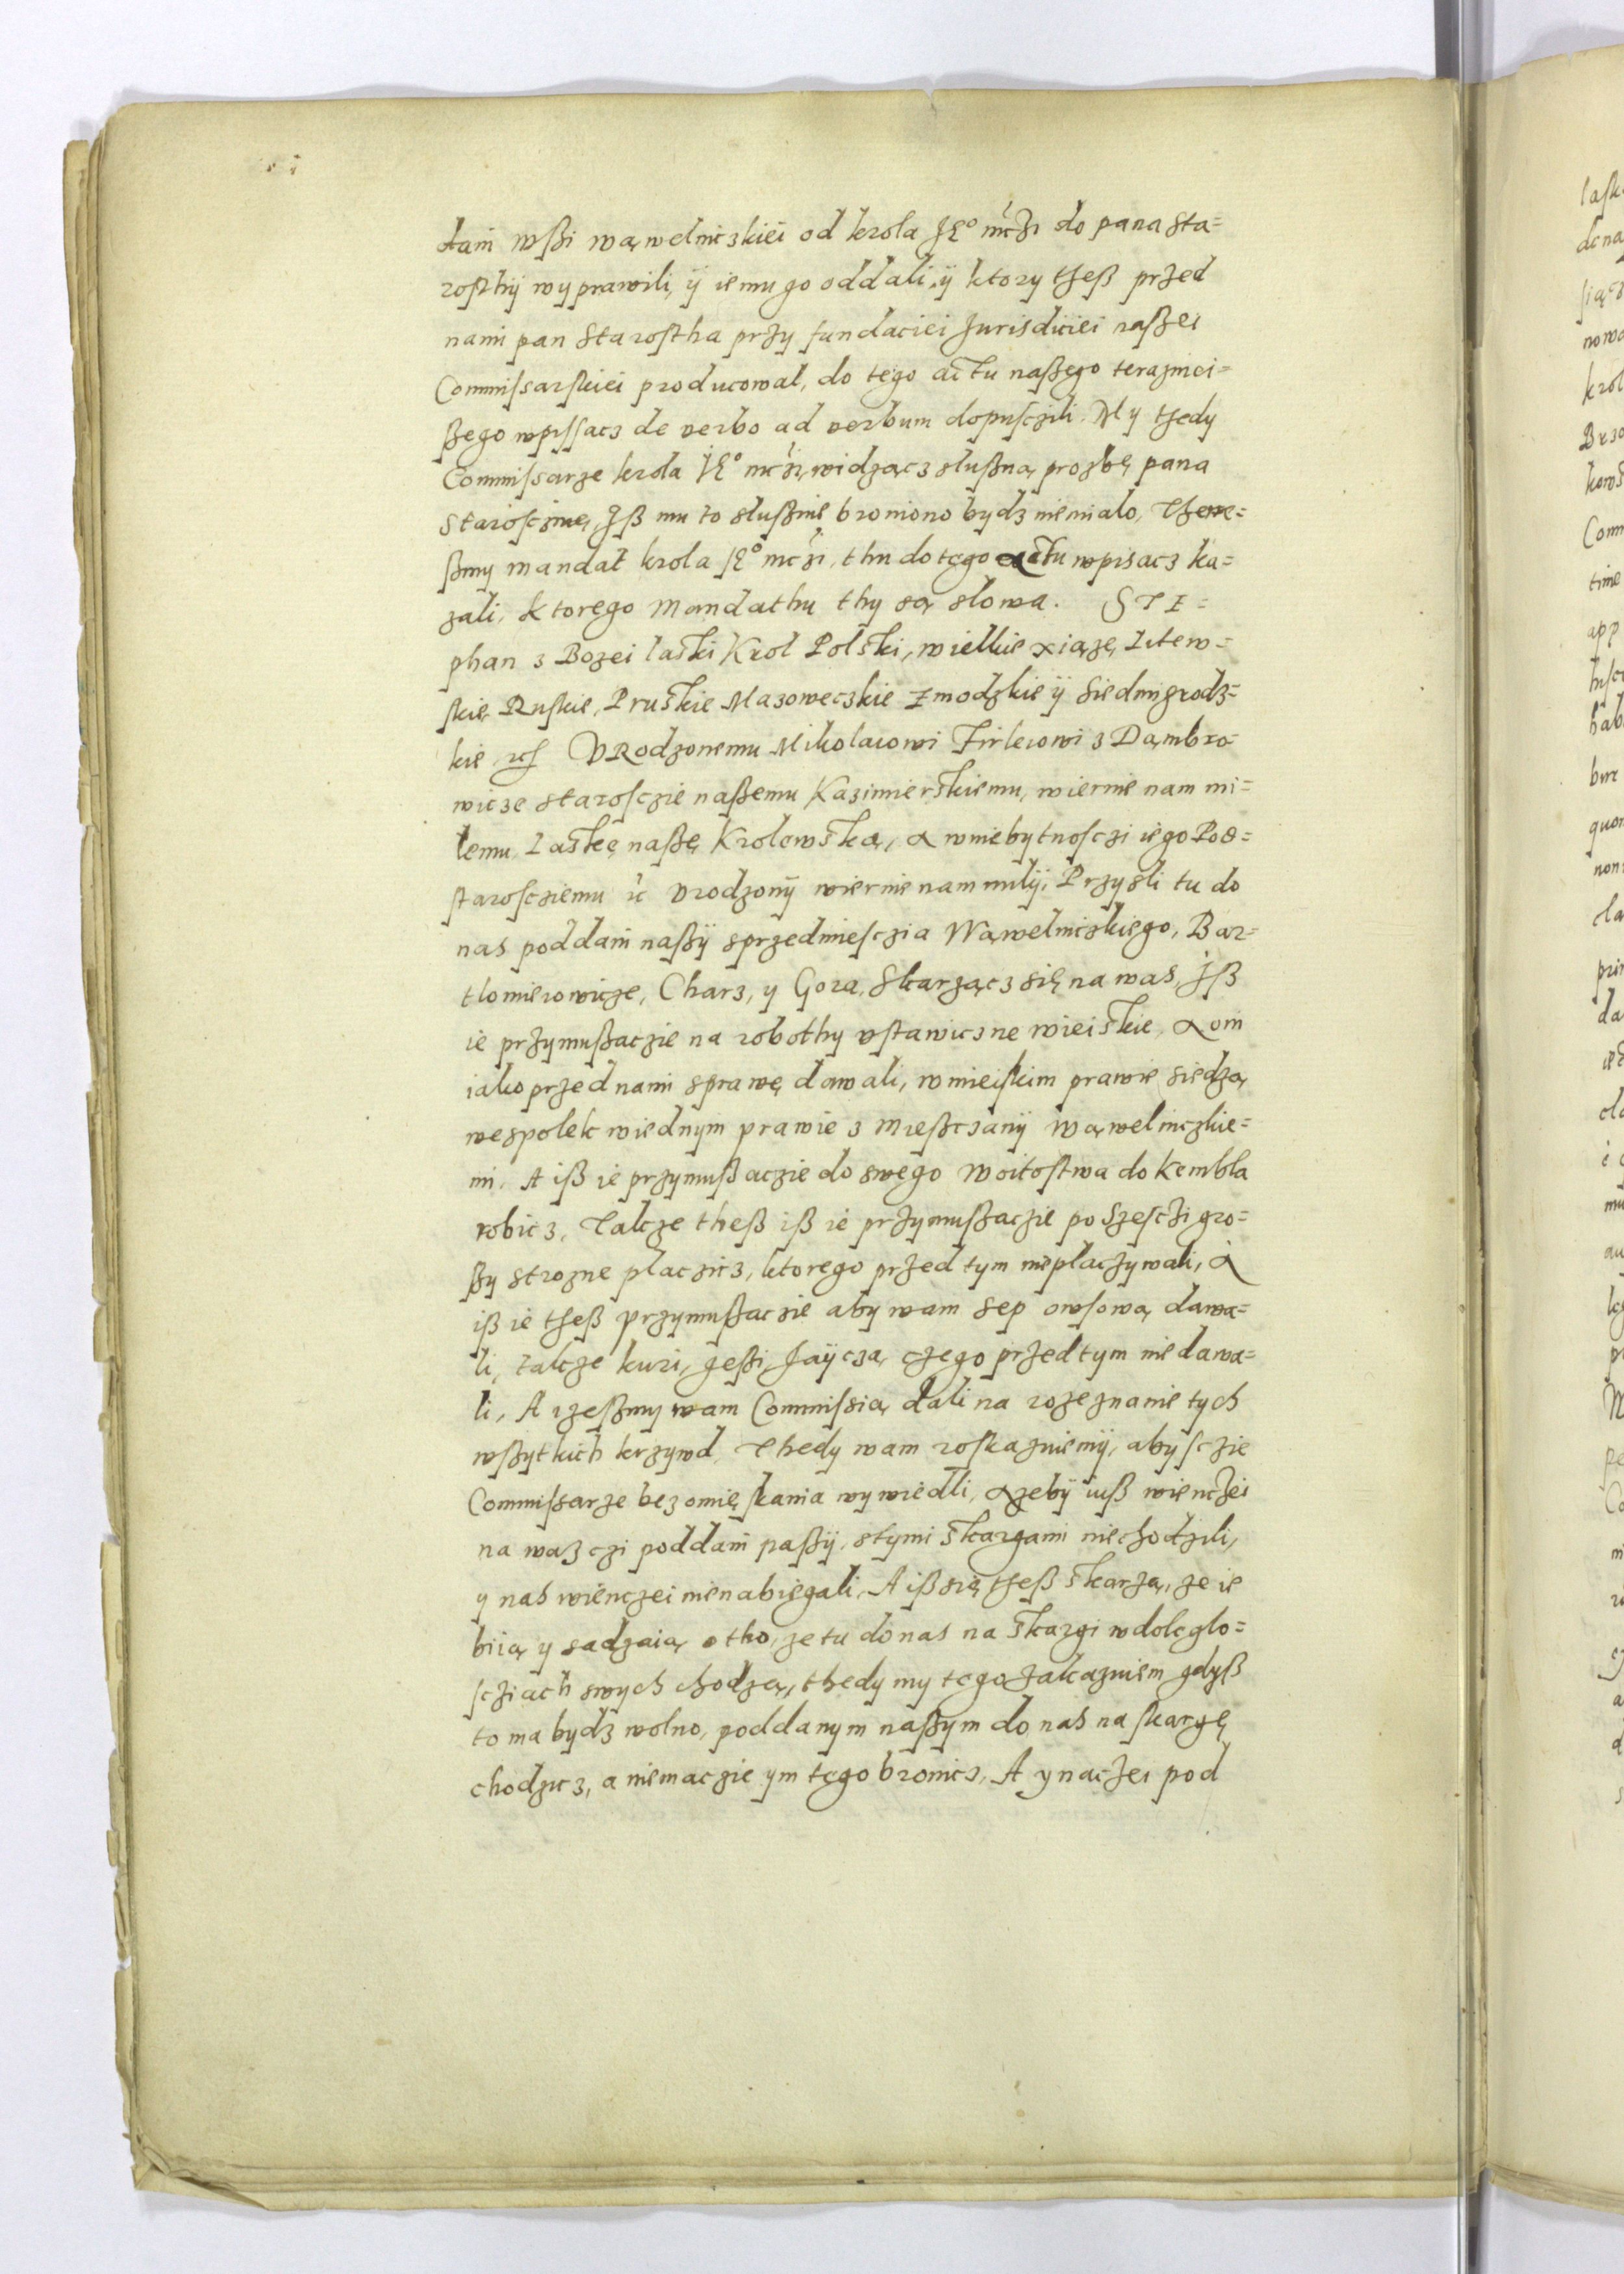 dani wßi wąwelniczkiei od krola JE° mczi do pana sta=
rosthÿ wyprawili, ÿ iemu go oddali, ÿ ktory theß przed
nami pan Starostha przy fundaciei Jurisdiciei naszei
Commissarskiei producowal, do tego actu naßego teraznei=
ßego wpissacz de verbo ad verbum dopusczili. My thedy
Commissarze krola JE° mczi, widzącz slußną prozbę pana
Starosczinę, Iß mu to slußnie broniono bydz niemialo, There=
ßmy mandat krola JE° mczi, thu do tego actu wpisacz ka=
zali, ktorego Mandathu thy są slowa. STE=
phan z Bozei laski Krol Polski, wielkie xiązę Litew=
skię Ruskie, Pruskie Mazoweczkie Zmodzkie ÿ Siedmigrodz=
kie etc VRodzonemu Mikolaiowi Firleiowi z Dąmbro=
wicze starosczie naßemu Kazimierskiemu, wiernie nam mi=
lemu Laskę naßę Krolewską, A wniebytnosczi iego Pod=
starosczięmu ic Vrodzonÿ wiernie nam milÿ. Przysli tu do
nas poddani naßÿ sprzedmiesczia Wąwelniczkiego, Bar=
tlomieiowicze, Charz, y Gora, Skarzącz się na was, Iß
ie przymußaczie na robothy vstawiczne wieiskie, A oni
iako przed nami sprawę dawali, w mieiskim prawie siedzą
wespolek wiednym prawie z Mießczanÿ Wąwelniczkie=
mi. A iß ie przymußaczie do swego Woitostwa do Kembla
robicz, Takze theß iß ie przymußaczie po Szesczi gro=
ßy strozne placzicz, ktorego przed tym nieplaczywali, A
iß ie theß przymußaczie aby wam sep owsową dawa=
li, takze kuri, gęßi, Jaÿcza, czego przed tym nie dawa=
li, A izeßmy wam Commissią dali na rozeznanie tych
wßytkich krzywd, Thedy wam roskazuiemÿ, abysczie
Commissarze bez omięskania wywiedli, A zebÿ iuß wienczei
na waz czi poddani naßÿ, stymi skargami niechodzili,
y nas wienczei nienabiegali, A iß się theß skarzą, ze ie
biią y sadzaią o tho, ze tu do nas na skargi w doleglo=
scziach swych chodzą, thedy my tego zakazuiem gdyß
to ma bydz wolno, poddanym naßym do nas na skargę
chodzicz, a niemaczie ym tego bronicz, A ynaczei pod